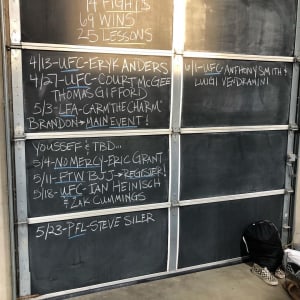 94 FIGHTS
69 WINS
25 LESSONS
4/13-UFC-ERYK ANDERS
4/27-UFC-COURT MCGEE
THOMAS GIFFORD
5/3-LFA-CARM THE CHARM
BRANDON→MAIN EVENT!
YOUSSEF & TBD...
5/4-NO MERCY-ERIC GRANT
5/11-FTW BJJ→REGISTER!
5/18-UFC-IAN HEINISCH
& ZAK CUMMINGS
5/23-PFL-STEVE SILER
6/1-UFC-ANTHONY SMITH &
LUIGI VENDRAMINI